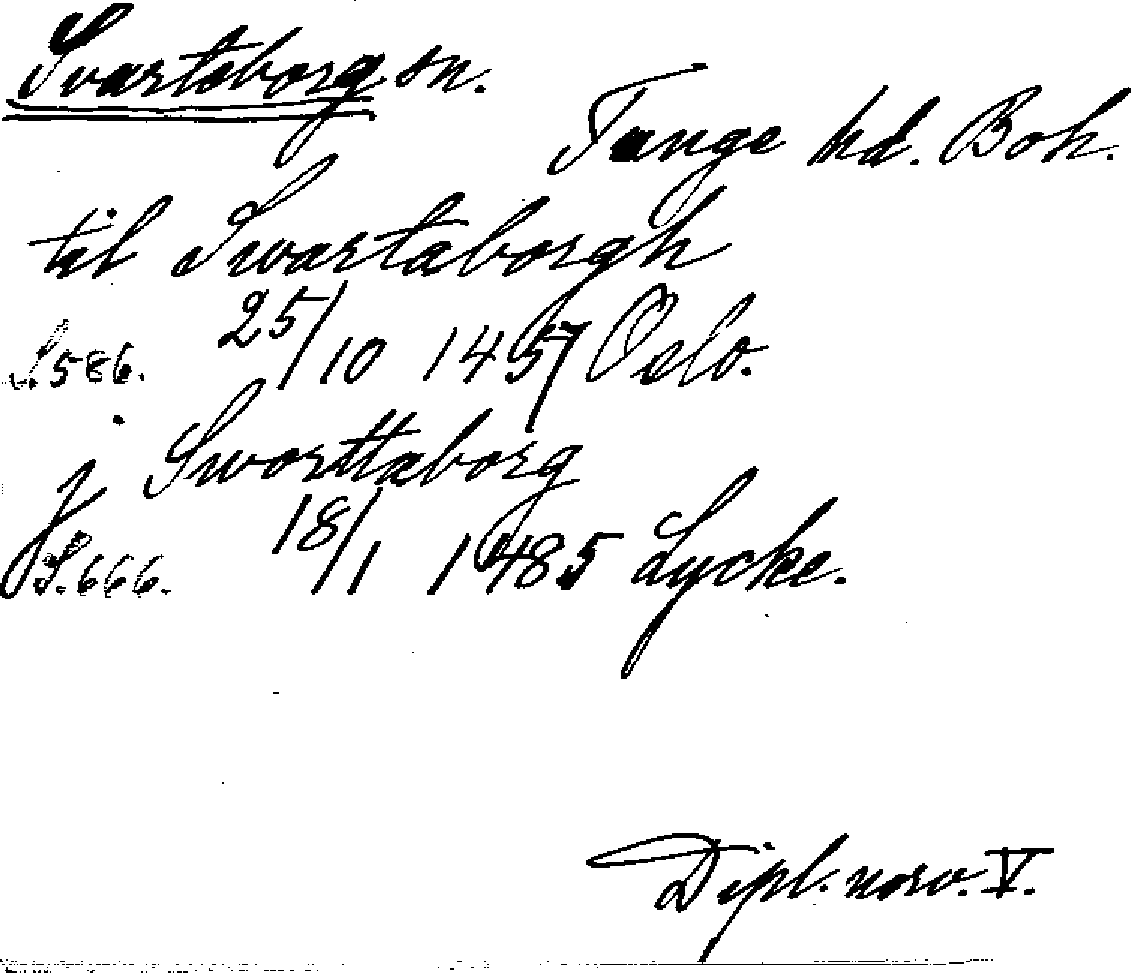 Svarteborg sn.
Tunge hd. Boh.
til Swartaborgh
S. 586. 25/10 1457 Oslo.
j Sworttaborg
S. 666. 18/1 1485 Lycke.
Dipl. norv. V.